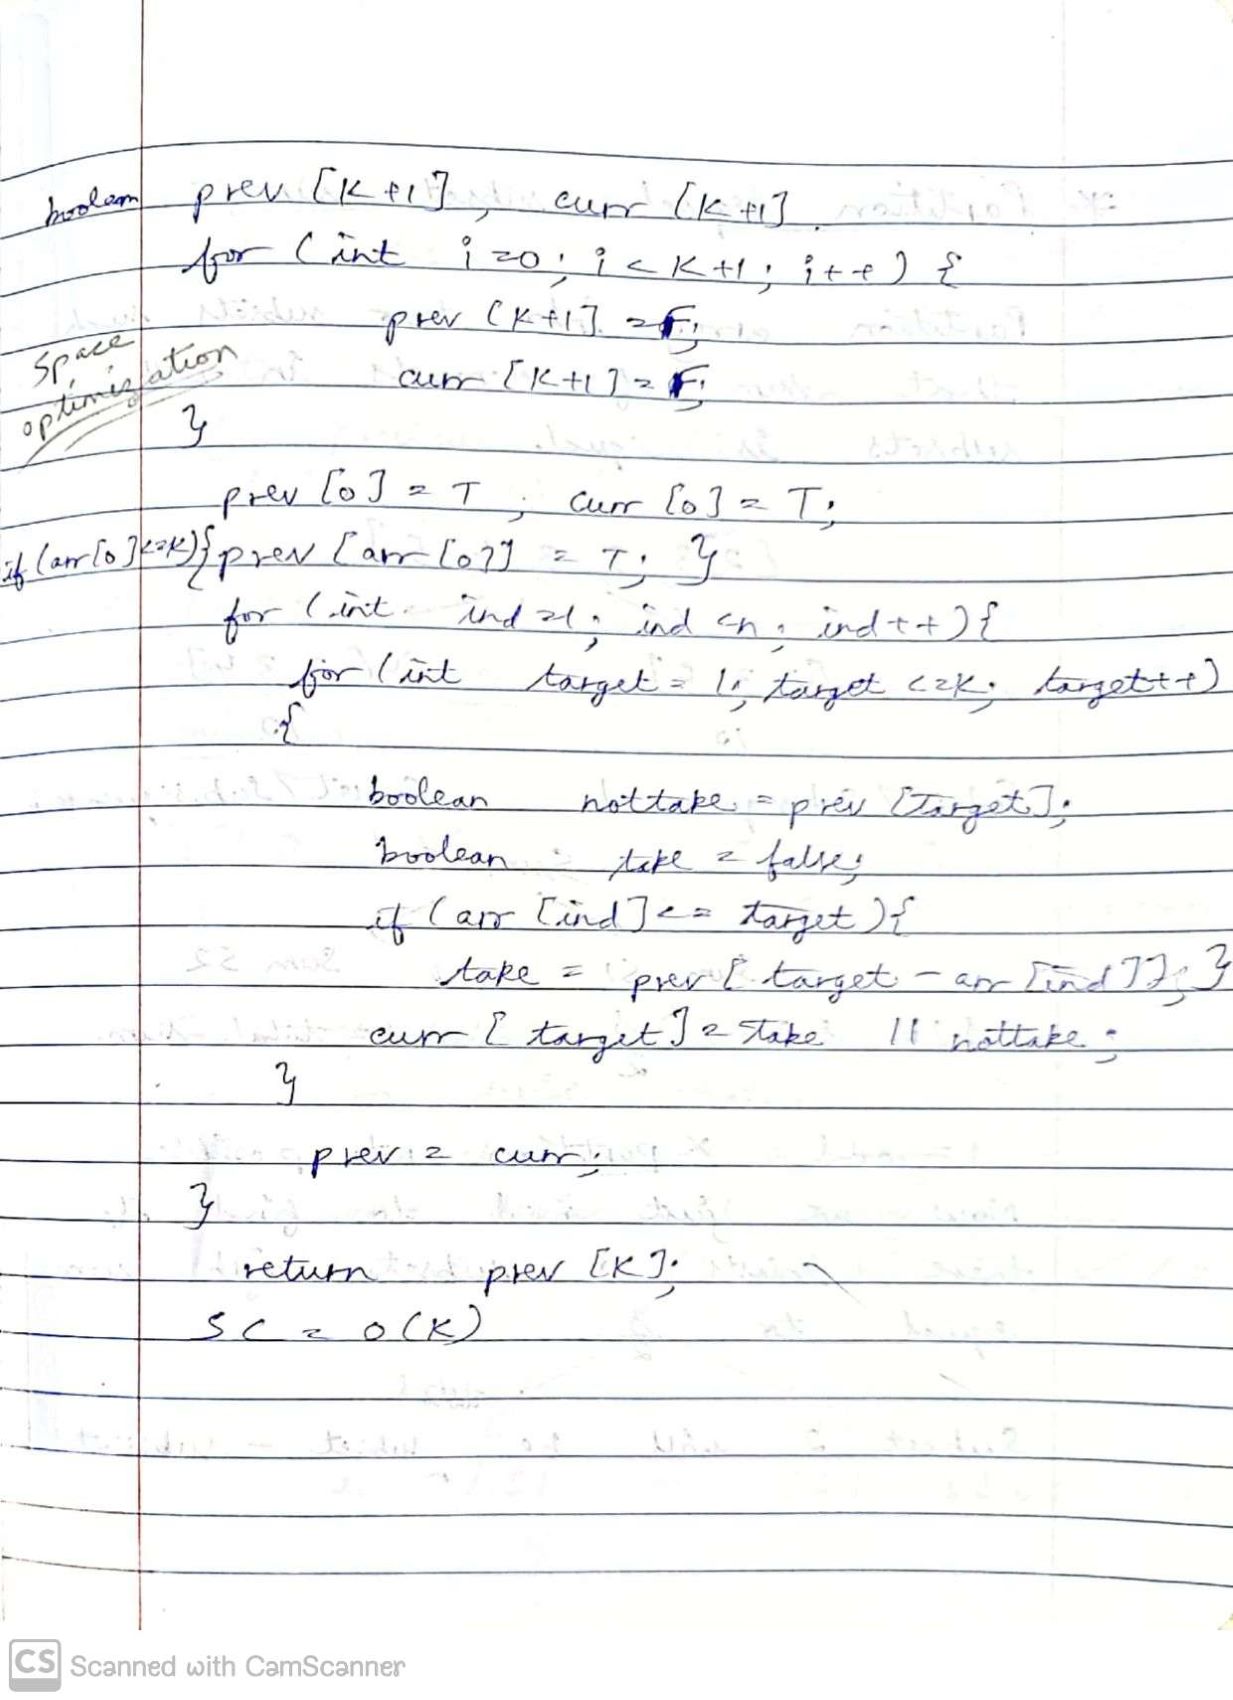 boolean prev [K+1], curr [K+1]
for (int i=0; i<K+1; i++) {
prev [K+1] = F;
Space
optimization
curr [K+1] = F;
}
prev [0] = T, curr [0] = T;
if (arr[0]<=K){ prev [arr [0]] = T; }
for (int ind=1; ind<n; ind++){
for (int target = 1; target <=K; target++)
{
boolean nottake = prev [target];
boolean take = false;
if (arr [ind] <= target){
take = prev [target - arr [ind]]; }
curr [target] = take || nottake;
}
prev = curr;
}
return prev [K];
SC = O(K)
CS Scanned with CamScanner